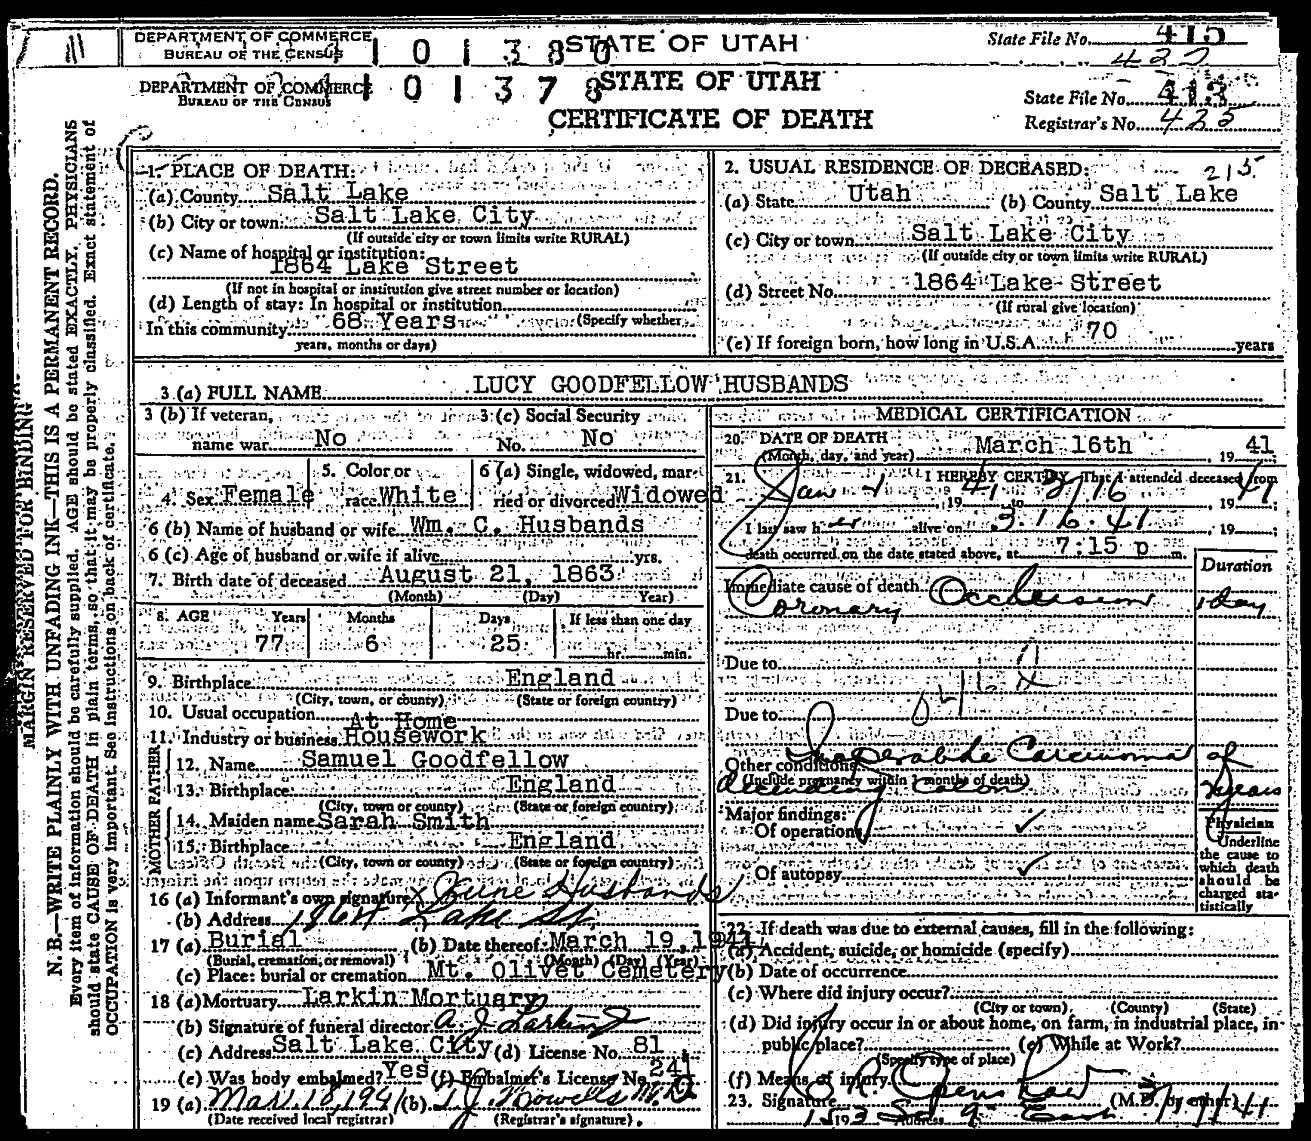 DEPARTMENT OF COMMERCE
BUREAU OF THE CENSUS
101380
STATE OF UTAH
State File No. 415
427
DEPARTMENT OF COMMERCE
BUREAU OF THE CENSUS
101378
STATE OF UTAH
CERTIFICATE OF DEATH
State File No. 413
Registrar's No. 425
MARGIN RESERVED FOR BINDING
N. B.—WRITE PLAINLY WITH UNFADING INK—THIS IS A PERMANENT RECORD.
Every item of information should be carefully supplied. AGE should be stated EXACTLY. PHYSICIANS
should state CAUSE OF DEATH in plain terms, so that it may be properly classified. Exact statement of
OCCUPATION is very important. See instructions on back of certificate.
1. PLACE OF DEATH:
(a) County Salt Lake
(b) City or town Salt Lake City
(If outside city or town limits write RURAL)
(c) Name of hospital or institution:
1864 Lake Street
(If not in hospital or institution give street number or location)
(d) Length of stay: In hospital or institution
(Specify whether
In this community 68 Years
years, months or days)
2. USUAL RESIDENCE OF DECEASED: 215
(a) State Utah (b) County Salt Lake
(c) City or town Salt Lake City
(If outside city or town limits write RURAL)
(d) Street No. 1864 Lake Street
(If rural give location)
(e) If foreign born, how long in U.S.A. 70 years
3 (a) FULL NAME LUCY GOODFELLOW HUSBANDS
3 (b) If veteran,
name war No
3 (c) Social Security
No. No
4. Sex Female
5. Color or
race White
6 (a) Single, widowed, mar-
ried or divorced Widowed
6 (b) Name of husband or wife Wm. C. Husbands
6 (c) Age of husband or wife if alive yrs.
7. Birth date of deceased August 21, 1863
(Month) (Day) Year)
8. AGE Years Months Days If less than one day
77 6 25 hr. min.
9. Birthplace England
(City, town, or county) (State or foreign country)
10. Usual occupation At Home
11. Industry or business Housework
FATHER
12. Name Samuel Goodfellow
13. Birthplace England
(City, town or county) (State or foreign country)
MOTHER
14. Maiden name Sarah Smith
15. Birthplace England
(City, town or county) (State or foreign country)
16 (a) Informant's own signature x June Husbands
(b) Address 1864 Lake St.
17 (a) Burial (b) Date thereof March 19, 1941
(Burial, cremation, or removal) (Month) (Day) (Year)
(c) Place: burial or cremation Mt. Olivet Cemetery
18 (a) Mortuary Larkin Mortuary
(b) Signature of funeral director A J Larkin
(c) Address Salt Lake City (d) License No. 81
(e) Was body embalmed? Yes (f) Embalmer's License No. 241
19 (a) Mar. 18, 1941 (b) T. J. Howells M.D.
(Date received local registrar) (Registrar's signature)
MEDICAL CERTIFICATION
20. DATE OF DEATH
(Month, day, and year) March 16th, 19 41
21. I HEREBY CERTIFY That I attended deceased from
Jan 1, 19 41 to 3/16, 19 41
I last saw her alive on 3 16 41, 19
death occurred on the date stated above, at 7:15 p m.
Duration
Immediate cause of death
Coronary Occlusion 1 day
Due to
Due to
Other conditions Inoperable Carcinoma of
(Include pregnancy within 3 months of death)
Ascending Colon 2 years
Major findings:
Of operation ✓
Of autopsy ✓
Physician
Underline
the cause to
which death
should be
charged sta-
tistically
22. If death was due to external causes, fill in the following:
(a) Accident, suicide, or homicide (specify)
(b) Date of occurrence
(c) Where did injury occur?
(City or town) (County) (State)
(d) Did injury occur in or about home, on farm, in industrial place, in
public place? (e) While at Work?
(Specify type of place)
(f) Means of injury
23. Signature R. Openshaw (M.D. or other)
Address